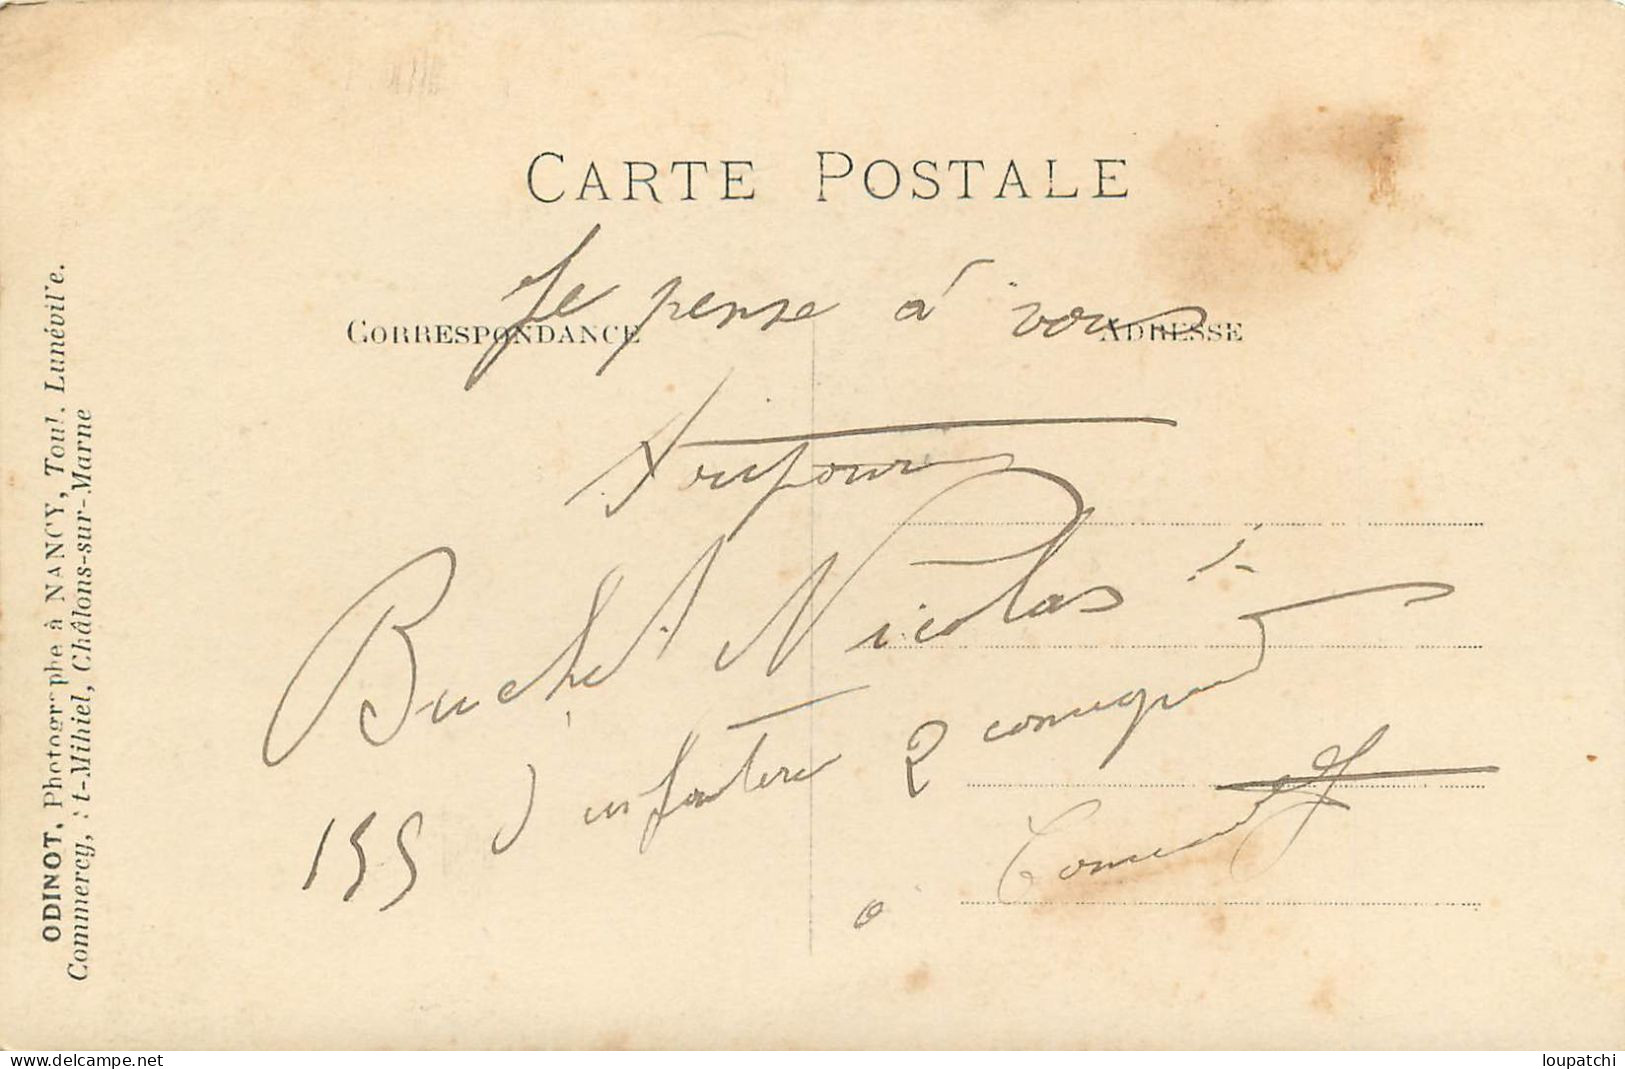 CARTE POSTALE
Je pense à vous
CORRESPONDANCE
ADRESSE
Toujours
Buchet Nicolas
155 d'infanterie 2
à Commercy
ODINOT, Photographe à NANCY, Toul. Lunéville.
Commercy, St-Mihiel, Châlons-sur-Marne
delcampe.net
loupatchi